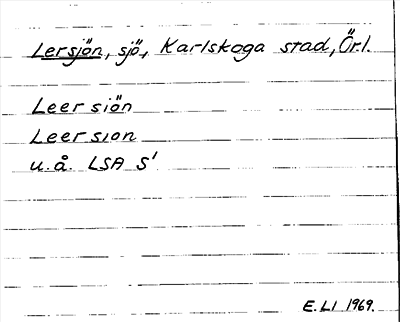 Lersjön, sjö, Karlskoga stad, Örl.
Leer siön
Leer sion
u.å. LSA S'
E.LI 1969.